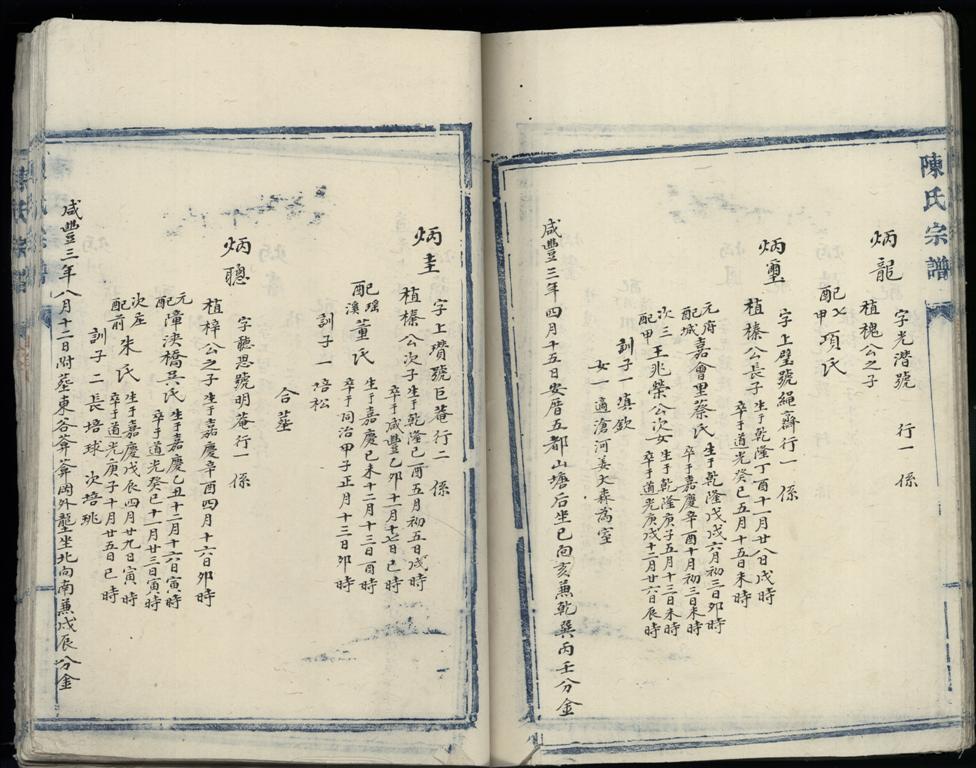 陳氏宗譜
炳龍
字光潛號 行一 係
植槐公之子
配甲七項氏
炳璽
字上璧號繩齋行一 係
植榛公長子生于乾隆丁酉十一月廿八日戌時
卒于道光癸巳五月十五日未時
元配府城嘉會里蔡氏生于乾隆戊戌六月初三日卯時
卒于嘉慶辛酉十月初三日未時
次配三甲王兆榮公次女生于乾隆庚子五月十三日未時
卒于道光庚戌十二月廿六日辰時
訓子一 滇欽
女一適滄河姜大森為室
咸豐三年四月十五日安厝五都山塘后坐巳向亥兼乾巽丙壬分金
炳圭
字上瓚號巨菴行二 係
植榛公次子生于乾隆己酉五月初五日戌時
卒于咸豐乙卯十一月十七日巳時
配瑶溪董氏生于嘉慶己未十二月十三日酉時
卒于同治甲子正月十三日卯時
訓子一 培松
合葬
炳聰
字聽思號明菴行一係
植梓公之子生于嘉慶辛酉四月十六日卯時
元配障決橋吳氏生于嘉慶乙丑十二月十六日寅時
卒于道光癸巳十一月廿三日寅時
次配屋前朱氏生于嘉慶戊辰四月廿九日寅時
卒于道光庚子十月廿五日巳時
訓子二長培球 次培珧
咸豐三年八月十二日附葬東谷岙岙岡外壟坐北向南兼戌辰分金